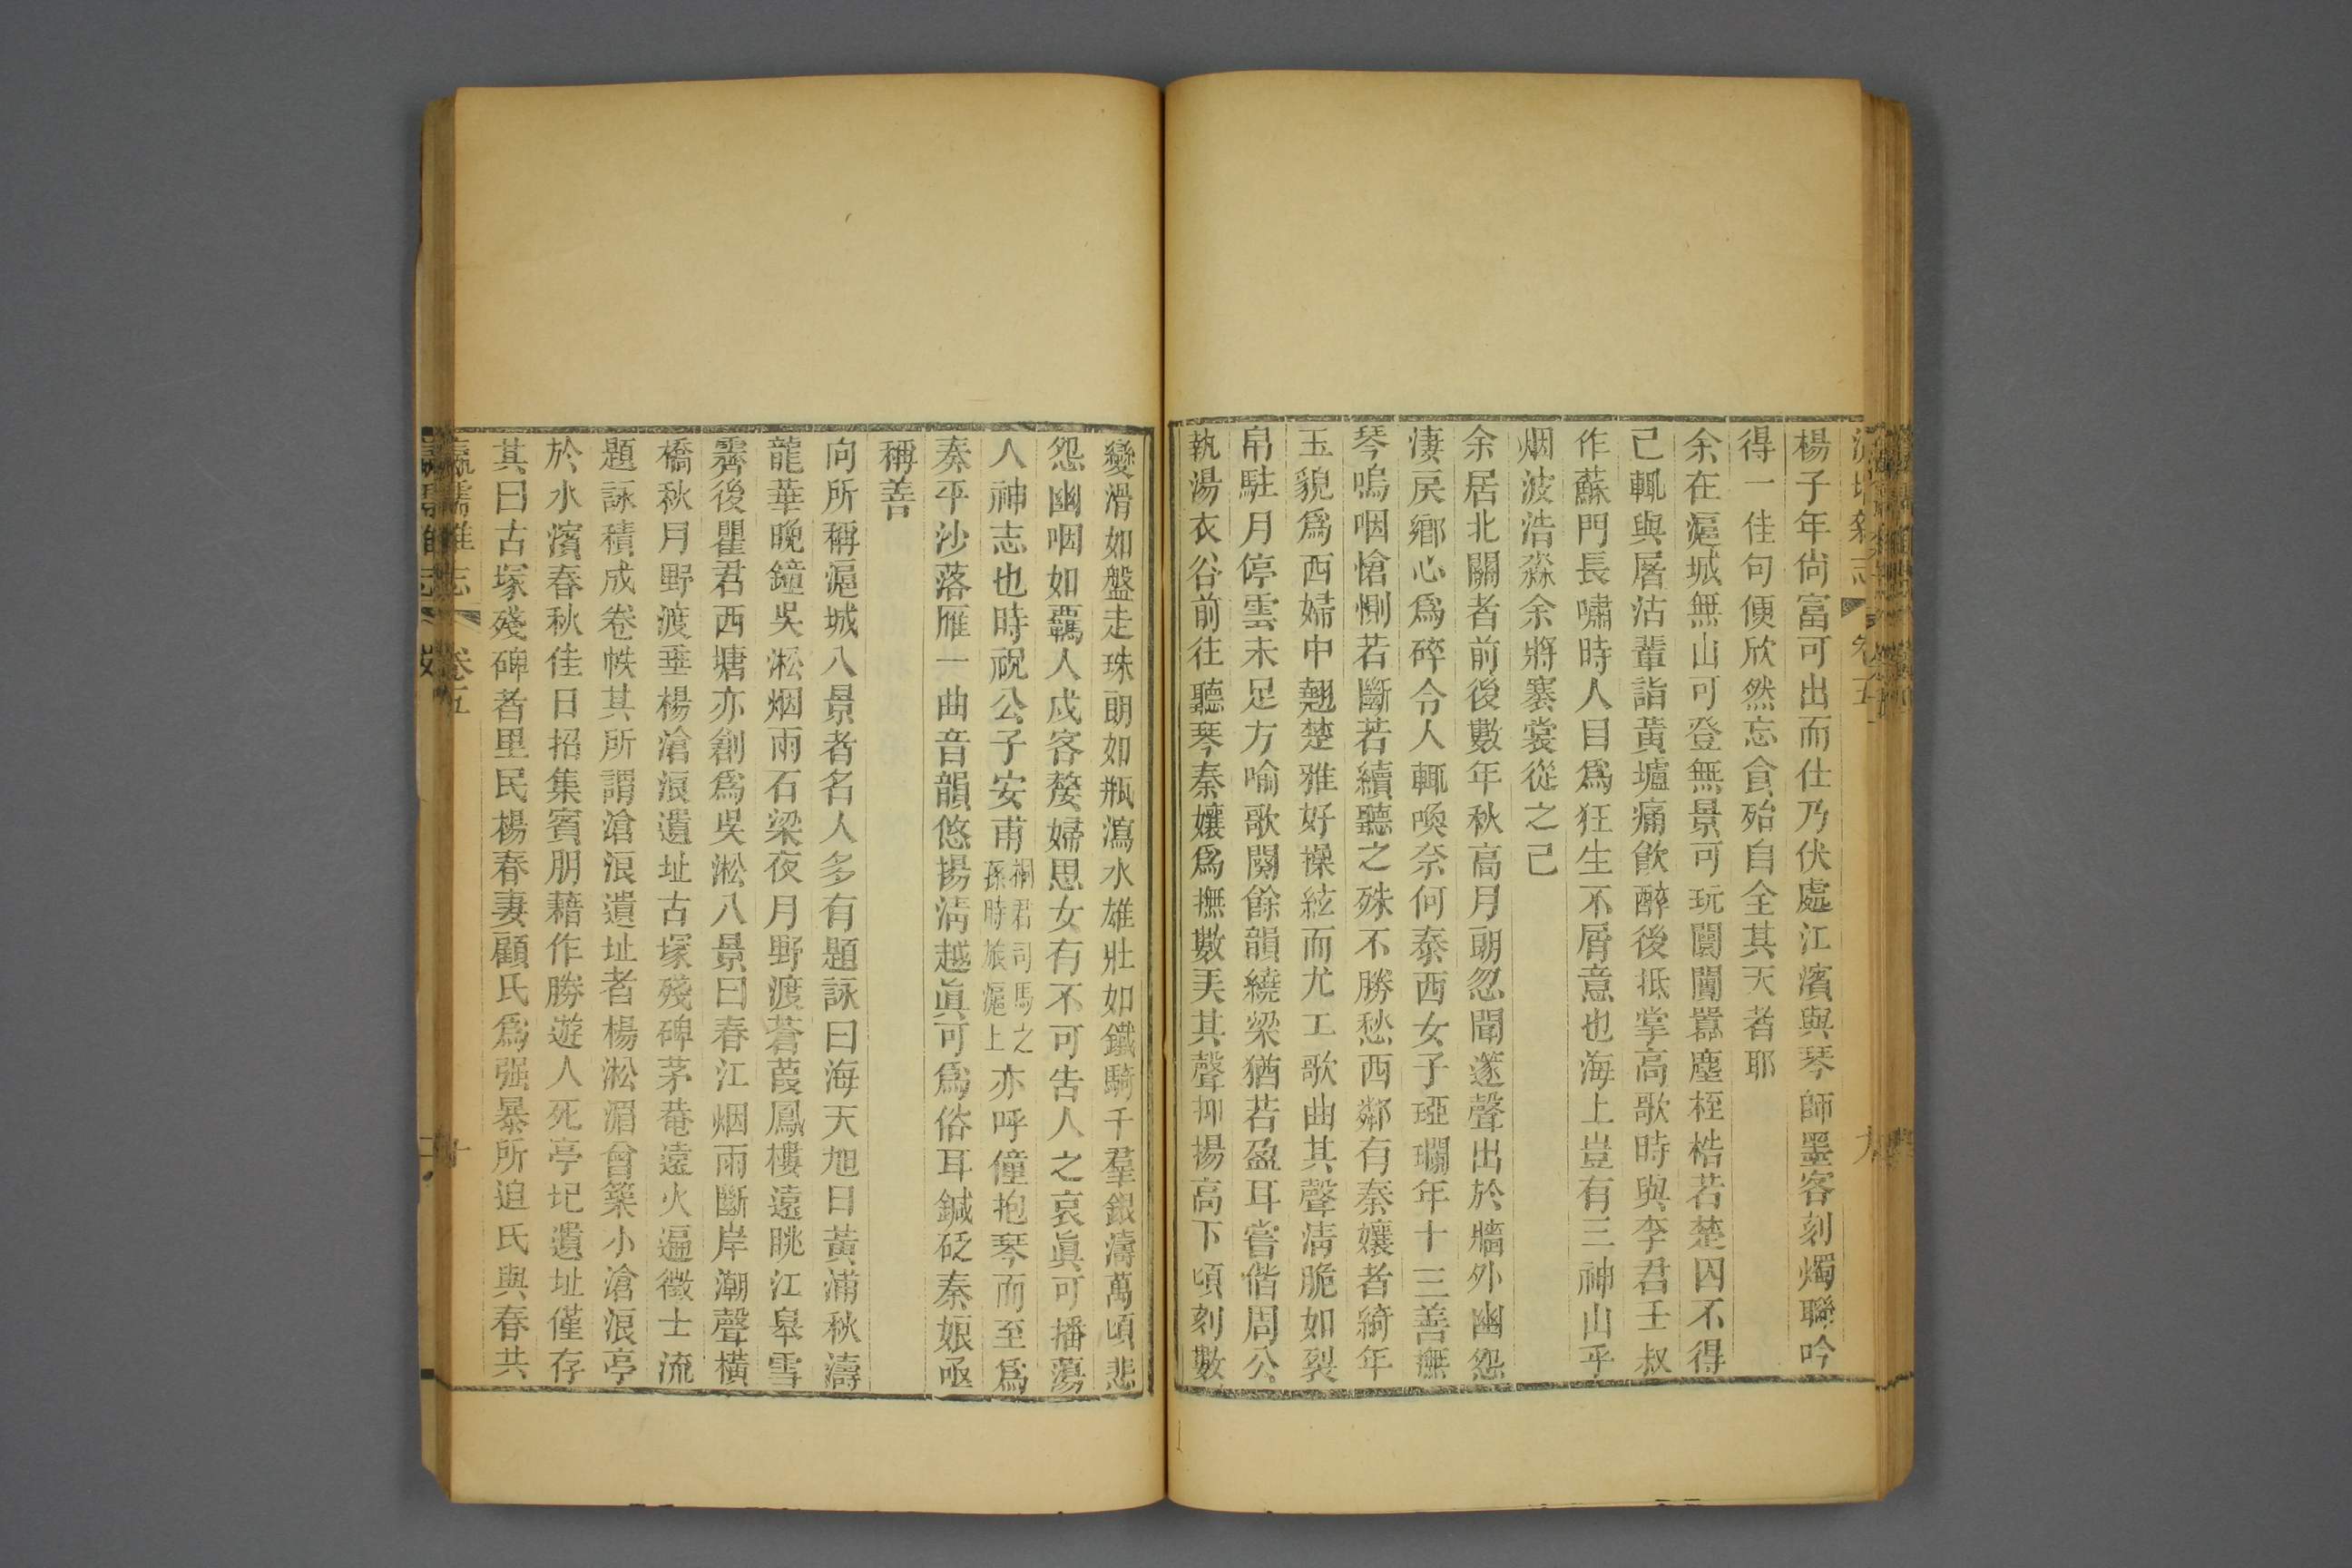 楊子年尚富可出而仕乃伏處江濱與琴師墨客刻燭聯吟
得一佳句便欣然忘食殆自全其天者耶
余在滬城無山可登無景可玩闤闠囂塵桎梏若楚囚不得
已輒與屠沽輩詣黃壚痛飲醉後抵掌高歌時與李君壬叔
作蘇門長嘯時人目爲狂生不屑意也海上豈有三神山乎
烟波浩淼余將褰裳從之已
余居北關者前後數年秋高月朗忽聞邃聲出於牆外幽怨
淒戾鄉心爲碎令人輒喚奈何泰西女子瑥瓓年十三善撫
琴嗚咽愴惻若斷若續聽之殊不勝愁西鄰有秦孃者綺年
玉貌爲西婦中翹楚雅好操絃而尤工歌曲其聲清脆如裂
帛駐月停雲未足方喻歌闋餘韻繞梁猶若盈耳嘗偕周公
執湯衣谷前往聽琴秦孃爲撫數美其聲抑揚高下頃刻數
變滑如盤走珠朗如瓶瀉水雄壯如鐵騎千羣銀濤萬頃悲
怨幽咽如羈人戍客嫠婦思女有不可告人之哀眞可播蕩
人神志也時祝公子安甫桐君司馬之孫時旅滬上亦呼僮抱琴而至爲
奏平沙落雁一曲音韻悠揚清越眞可爲俗耳鍼砭秦娘亟
稱善
向所稱滬城八景者名人多有題詠曰海天旭日黃浦秋濤
龍華晚鐘吳淞烟雨石梁夜月野渡蒼葭鳳樓遠眺江皋雪
霽後瞿君西塘亦創爲吳淞八景曰春江烟雨斷岸潮聲橫
橋秋月野渡垂楊滄浪遺址古塚殘碑茅菴遠火遍徵士流
題詠積成卷帙其所謂滄浪遺址者楊淞湄曾築小滄浪亭
於水濱春秋佳日招集賓朋藉作勝遊人死亭圮遺址僅存
其曰古塚殘碑者里民楊春妻顧氏爲强暴所迫氏與春共
卷五
十